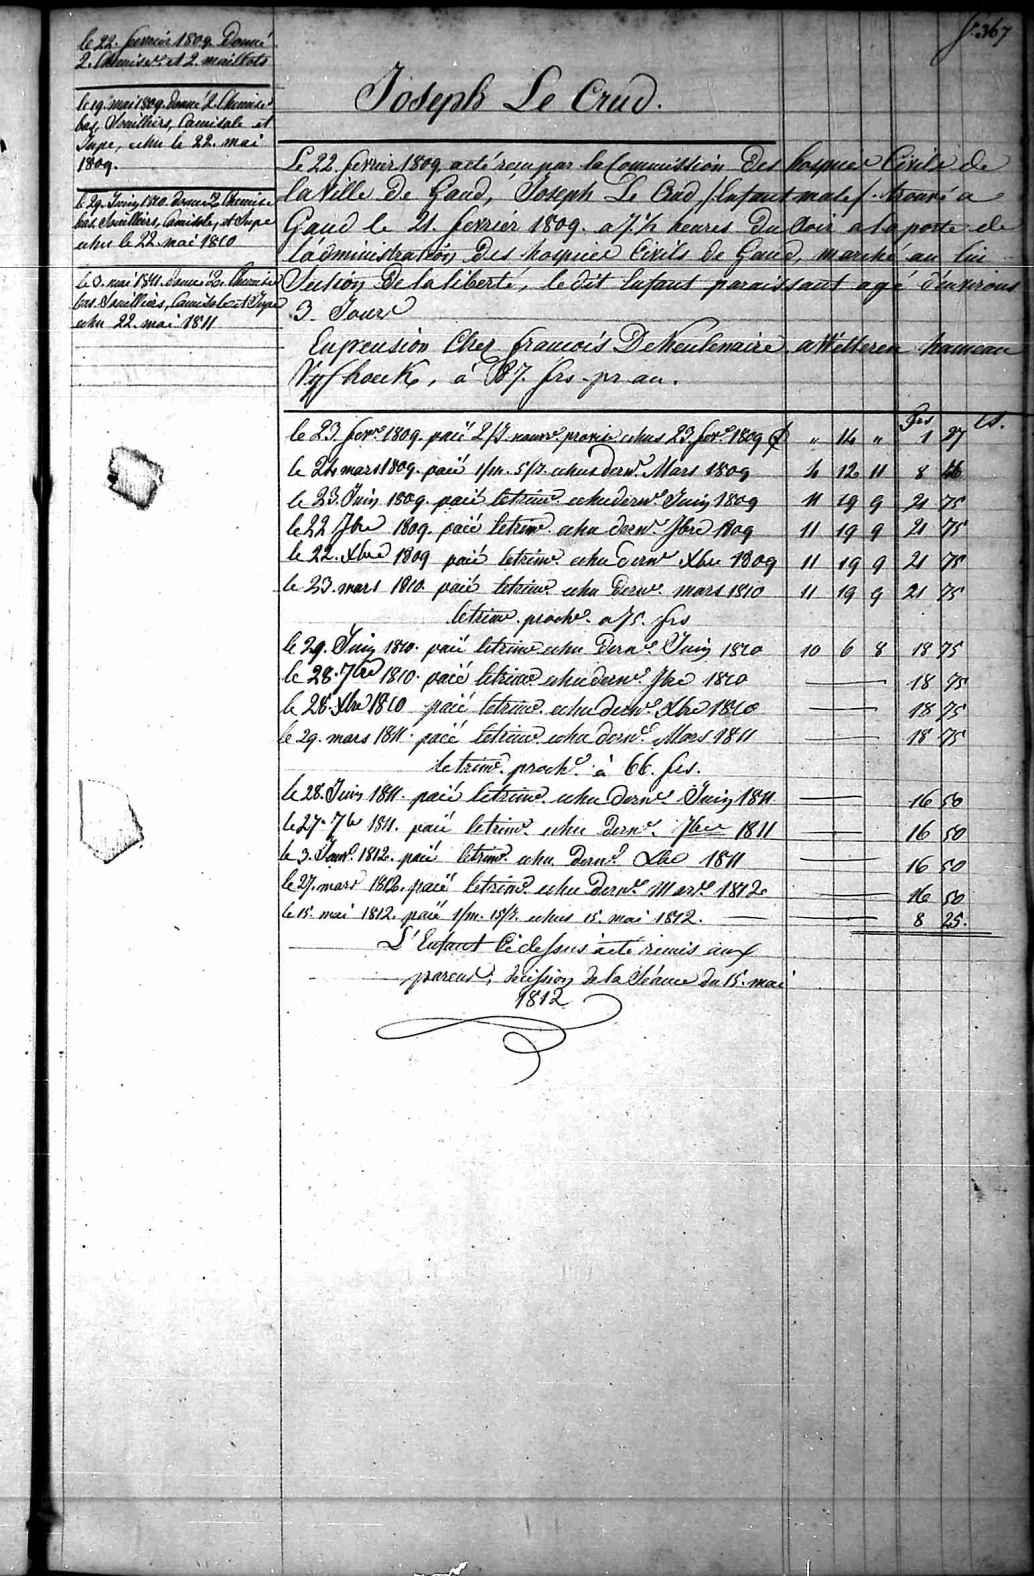 f. 367
le 22. fevrier 1809. Donné
2. Chemises et 2. maillots
le 19. mai 1809. donné 2. Chemises
bas, Souilliers, Camisole et
Jupe, echu le 22. mai
1809.
le 29. Juin 1810. donné 2 Chemises
bas. Souilliers, Camisole, et Jupe
echu le 22. mai 1810
le 3. mai 1811. donné 2. Chemises
bas. Souilliers, Camisole et Jupe
echu 22. mai 1811
Joseph Le Crud.
Le 22. fevrier 1809. a eté reçu par la Commission Des hospices Civils de
la Ville De Gand, Joseph Le Crud /: Enfant male :/ trouvé a
Gand le 21. fevrier 1809. a 7 1/2 heures Du Soir a la porte de
l'administration Des hospices Civils de Gand, marché au lin
Section De la liberté, le dit Enfant paraissant agé d'environs
3. Jours
En pension Chez francois De Meulenaire, a Wetteren hameau
Vyfhoeck, á 87. frs. pr. an.
Frs Cs.
le 23. fevr. 1809. paié 2/3. nourre. provis. echus 23. fevr. 1809 „ 14 „ 1 27
le 24 mars 1809. paié 1/m. 5/7. echus dernr. Mars 1809 4 12 11 8
le 23. Juin 1809. paié le trime. echu dernr. Juin 1809 11 19 9 21 75
le 22 7bre 1809. paié le trime. echu dernr. 7bre 1809 11 19 9 21 75
le 22. Xbre 1809 paié le trime. echu dernr. Xbre 1809 11 19 9 21 75
le 23. mars 1810. paié le trime. echu Dernr. mars 1810 11 19 9 21 75
le trime. proche. a 75. frs
le 29. Juin 1810. paié le trime. echu Dernr. Juin 1810 10 6 8 18 75
le 28. 7bre 1810. paié le trime. echu dernr. 7bre 1810 18 75
le 28. Xbre 1810 paié le trime. echu dernr. Xbre 1810 18 75
le 29. mars 1811. paié le trime. echu dernr. Mars 1811 18 75
le trime. proche. á 66. frs.
le 28. Juin 1811. paié le trime. echu dernr. Juin 1811 16 50
le 27. 7bre 1811. paié le trime. echu Dernr. 7bre 1811 16 50
le 3. Janvr. 1812. paié le trime. echu Dernr. Xbre 1811 16 50
le 27. mars 1812. paié le trime. echu Dernr. Mars. 1812. 16 50
le 15. mai 1812. paié 1/m. 15/7. echus 15. mai 1812. 8 25.
L'Enfant Ci dessus a eté remis aux
parens, decission de la Séance du 15. mai
1812